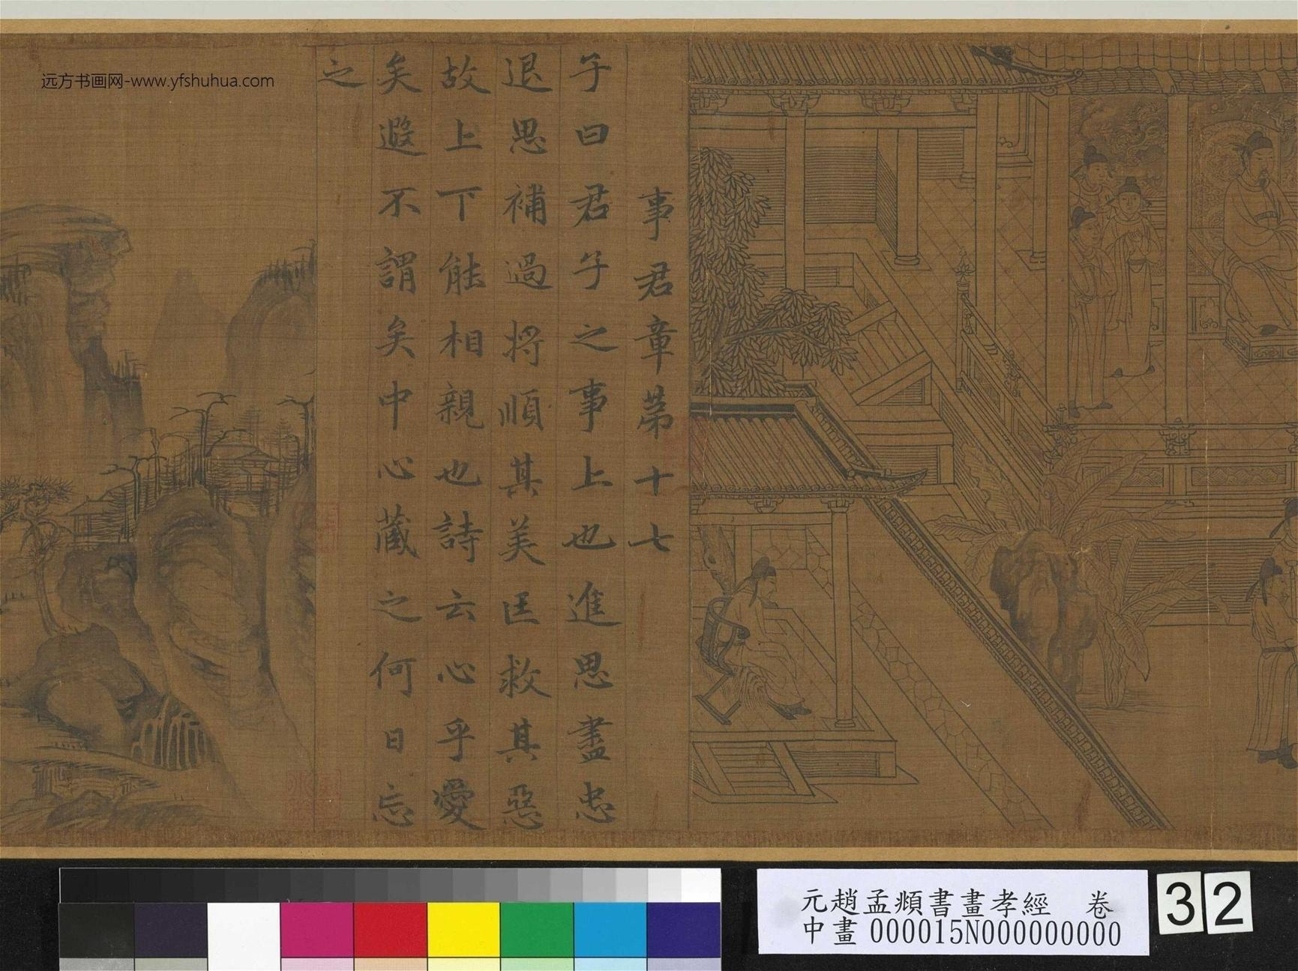 远方书画网-www.yfshuhua.com
事君章第十七
子曰君子之事上也進思盡忠
退思補過將順其美匡救其惡
故上下能相親也詩云心乎愛
矣遐不謂矣中心藏之何日忘
之
元趙孟頫書畫孝經 卷
中畫 000015N000000000
32